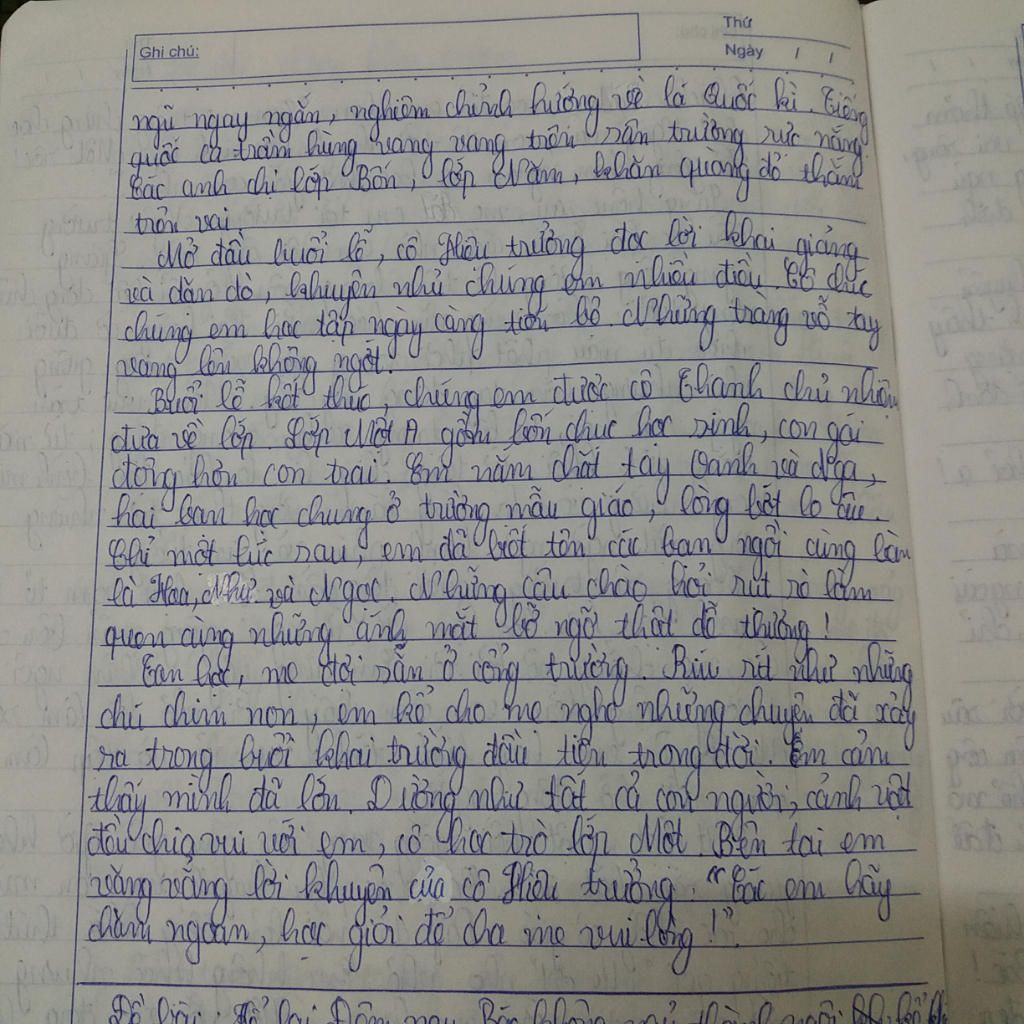 Thứ
Ghi chú:
Ngày / /
ngũ ngay ngắn, nghiêm chỉnh hướng về lá Quốc kì. Tiếng
quốc ca trầm hùng vang vang trên sân trường rực nắng.
Các anh chị lớp Bốn, lớp Năm, khăn quàng đỏ thắm
trên vai.
Mở đầu buổi lễ, cô Hiệu trưởng đọc lời khai giảng
và dặn dò, khuyên nhủ chúng em nhiều điều. Cô chúc
chúng em học tập ngày càng tiến bộ. Những tràng vỗ tay
vang lên không ngớt.
Buổi lễ kết thúc, chúng em được cô Thanh chủ nhiệm
đưa về lớp. Lớp Một A gồm bốn chục học sinh, con gái
đông hơn con trai. Em nắm chặt tay Oanh và Nga,
hai bạn học chung ở trường mẫu giáo, lòng bớt lo âu.
Chỉ một lúc sau, em đã biết tên các bạn ngồi cùng bàn
là Hoa, Như và Ngọc. Những câu chào hỏi rụt rè làm
quen cùng những ánh mắt bỡ ngỡ thật dễ thương!
Tan học, mẹ đợi sẵn ở cổng trường. Ríu rít như những
chú chim non, em kể cho mẹ nghe những chuyện đã xảy
ra trong buổi khai trường đầu tiên trong đời. Em cảm
thấy mình đã lớn. Dường như tất cả con người, cảnh vật
đều chia vui với em, cô học trò lớp Một. Bên tai em
văng vẳng lời khuyên của cô Hiệu trưởng: "Các em hãy
chăm ngoan, học giỏi để cha mẹ vui lòng!".
Đề bài: